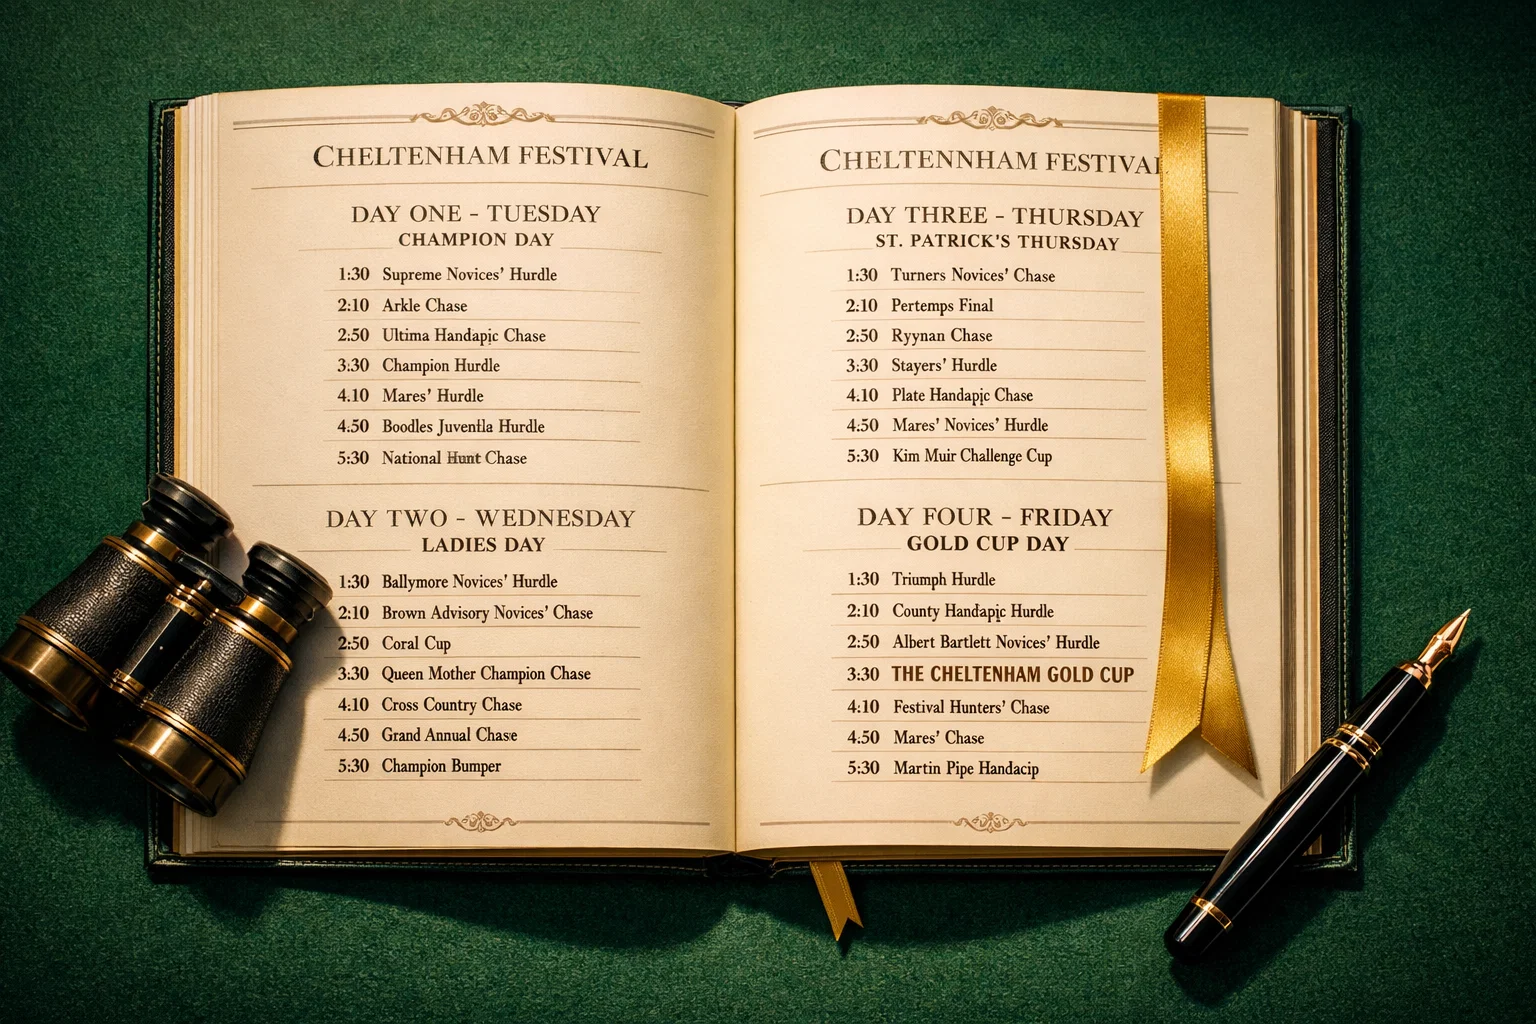 CHELTENHAM FESTIVAL
DAY ONE - TUESDAY
CHAMPION DAY
1:30 Supreme Novices' Hurdle
2:10 Arkle Chase
2:50 Ultima Handapic Chase
3:30 Champion Hurdle
4.10 Mares' Hurdle
4.50 Boodles Juventla Hurdle
5:30 National Hunt Chase
DAY TWO - WEDNESDAY
LADIES DAY
1:30 Ballymore Novices' Hurdle
2:10 Brown Advisory Novices' Chase
2:50 Coral Cup
3:30 Queen Mother Champion Chase
4:10 Cross Country Chase
4.50 Grand Annual Chase
5:30 Champion Bumper
CHELTENNHAM FESTIVAL
DAY THREE - THURSDAY
ST. PATRICK'S THURSDAY
1:30 Turners Novices' Chase
2:10 Pertemps Final
2:50 Ryynan Chase
3:30 Stayers' Hurdle
4.10 Plate Handapic Chase
4:50 Mares' Novices' Hurdle
5:30 Kim Muir Challenge Cup
DAY FOUR - FRIDAY
GOLD CUP DAY
1:30 Triumph Hurdle
2:10 County Handapic Hurdle
2:50 Albert Bartlett Novices' Hurdle
3:30 THE CHELTENHAM GOLD CUP
4:10 Festival Hunters' Chase
4.50 Mares' Chase
5:30 Martin Pipe Handacip